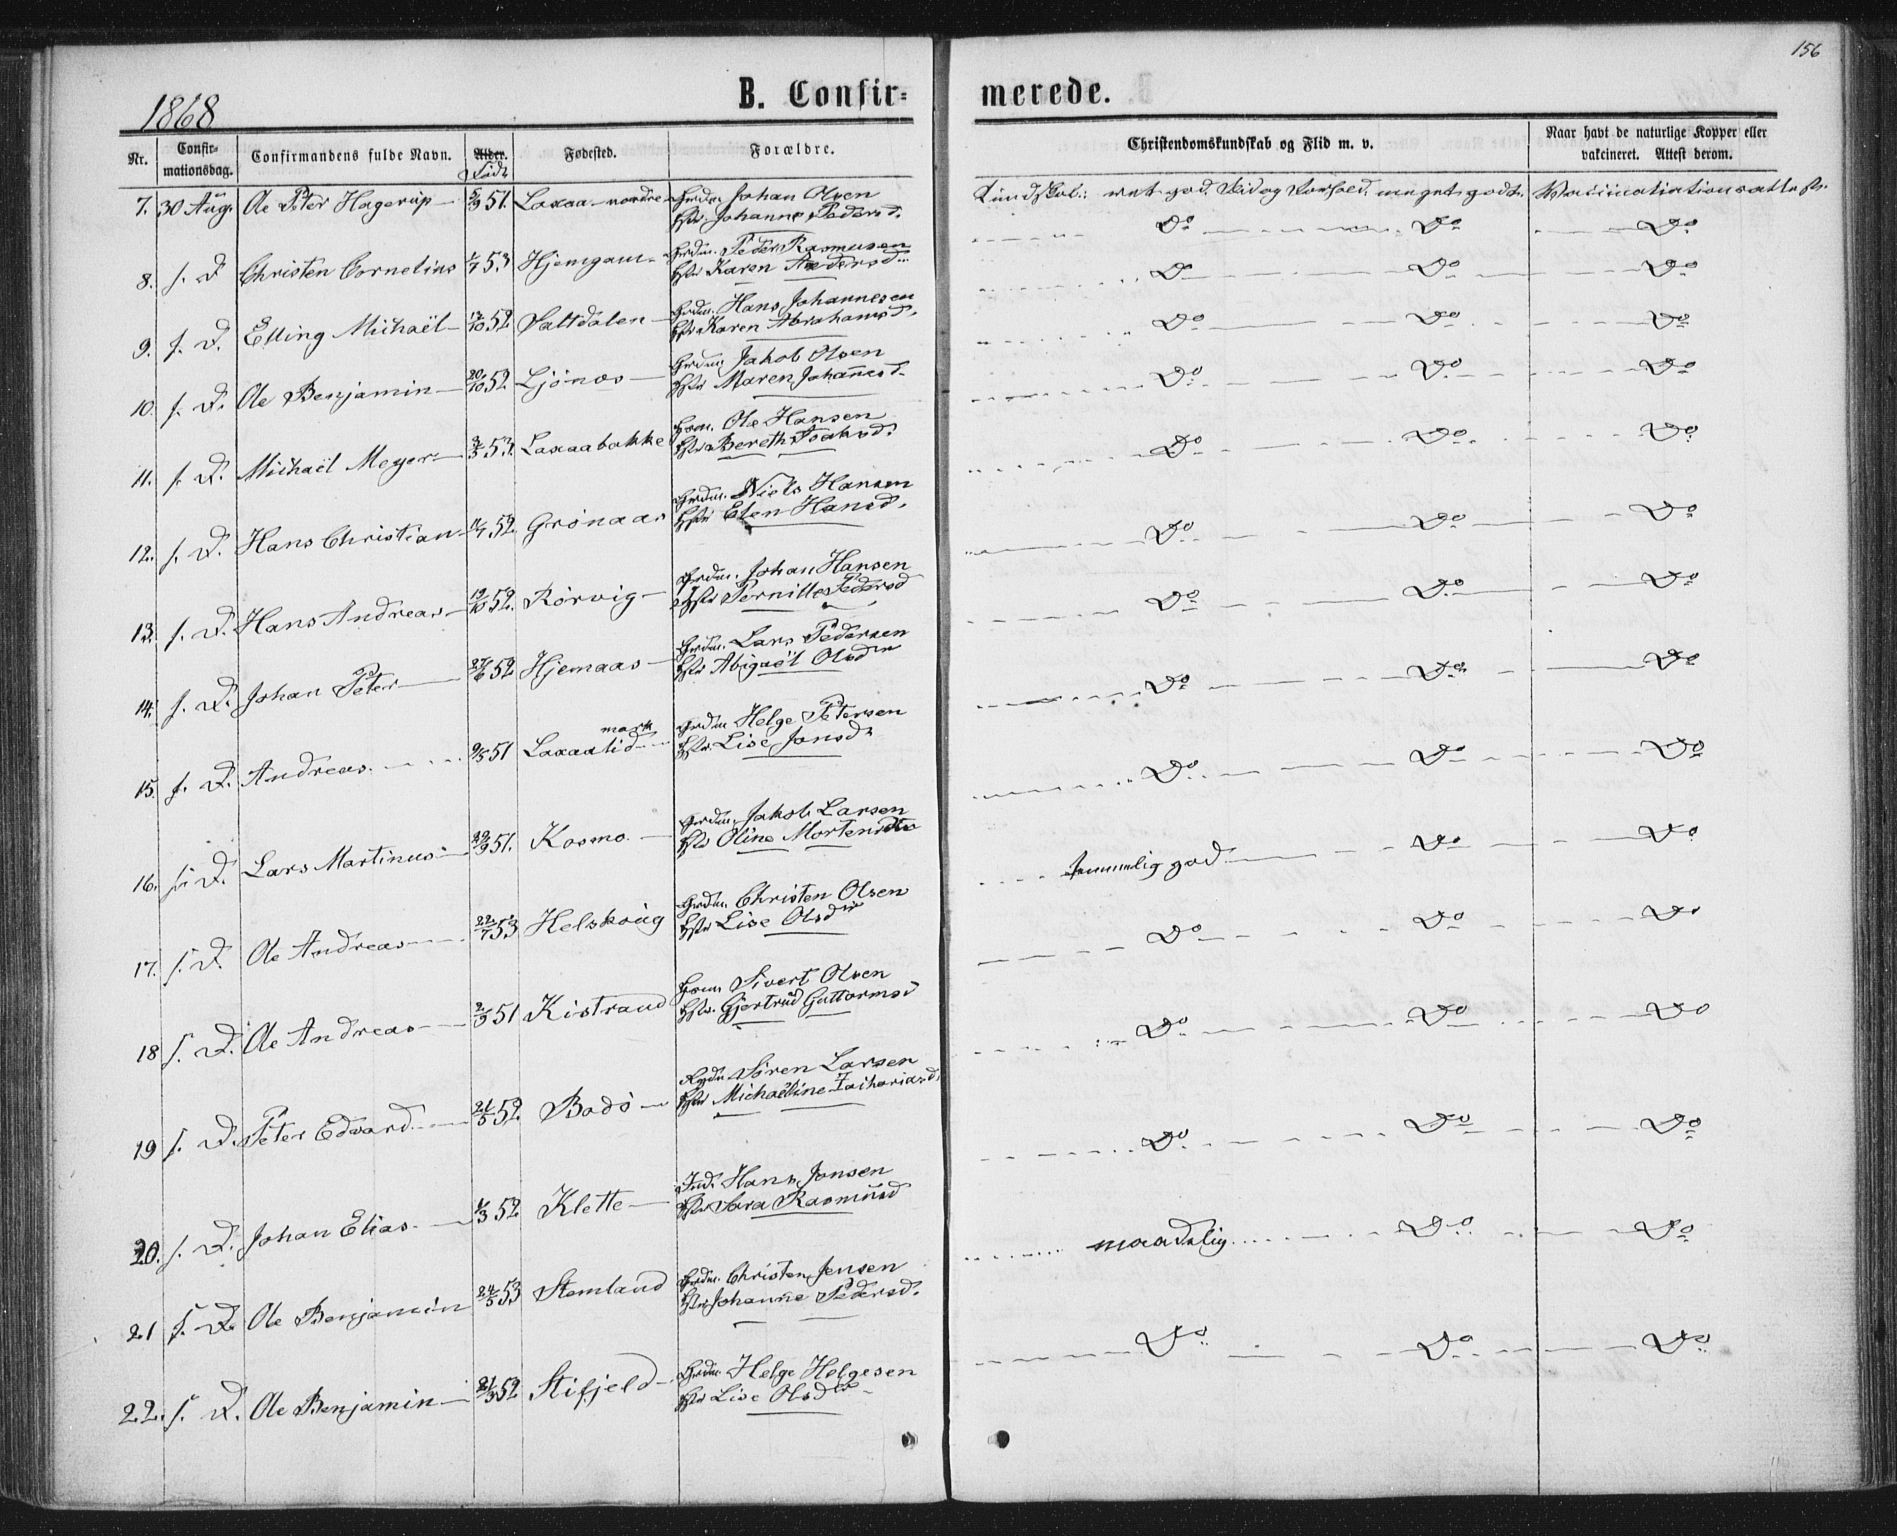 156
1868
B. Confir=
merede.
Nr.
Confir-
mationsdag.
Confirmandens fulde Navn.
Alder.
Födt
Fødested.
Forældre.
Christendomskundskab og Flid m. v.
Naar havt de naturlige Kopper eller
vakcineret. Attest derom.
7. 30 Aug. Ole Peter Hagerup 5/9 51. Laxaa nordre Grdm. Johan Olsen
Hstr Johanne Pedersd.
Kundskab: meget god. Flid og Forhold meget godt. Vaccinationsattest.
8. s. D Christen Cornelius 1/7 53 Hjemgam Grdm. Peder Rasmusen
Hstr Karen Andersd.
Do Do Do
9. s. D. Elling Michaël 12/10 52 Saltdalen Grdm. Hans Johannesen
Hstr Karen Abrahamsd.
Do Do Do
10. s. D. Ole Benjamin 20/10 52 Ljönæs Grdm. Jakob Olsen
Hstr Maren Johannesd.
Do Do Do
11. s. D. Michaël Meyer 3/3 53. Laxaabakke Hsm. Ole Hansen
Hstr Bereth Isaksd.
Do Do Do
12. s. D. Hans Christian 11/7 52. Grönaas Grdm. Niels Hansen
Hstr Elen Hansd.
Do Do Do
13. s. D. Hans Andreas 19/10 52. Rörvig Grdm. Johan Hansen
Hstr Pernille Pedersd
Do Do Do
14. s. D. Johan Peter 27/6 52 Hjemaas Grdm. Lars Pedersen
Hstr Abigaël Olsdr
Do Do Do
15. s. D. Andreas 9/5 51 Laxaalid mark Grdm Helge Petersen
Hstr. Lise Jonsdr
Do Do Do
16. s. D. Lars Martinus 29/9 51. Kosmo Grdm. Jakob Larsen
Hstr Oline Mortensdtr
Do Do Do
17. s. D. Ole Andreas 22/7 53 Helskoug Grdm. Christen Olsen
Hstr Lise Olsdr
temmelig god Do Do
18 s. D. Ole Andreas 2/9 51 Kistrand Hsm. Sivert Olsen
Hstr. Gjertrud Guttormsd
Do Do Do
19 s. D. Peter Edvard 21/5 52. Bodö Sören Larsen
Hstr Michaëline Zachariasd.
Do Do Do
20. s. D. Johan Elias 1/3 52 Klette Ind. Hans Jonsen
Hstr Sara Rasmusd
Do Do Do
21 s. D. Ole Benjamin 24/5 53 Stemland Grdm. Christen Jensen
Hstr Johanne Pedersd.
maadelig Do Do
22. s. D. Ole Benjamin 21/3 52 Stifjeld Grdm. Helge Helgesen
Hstr Lise Olsdr
Do Do Do